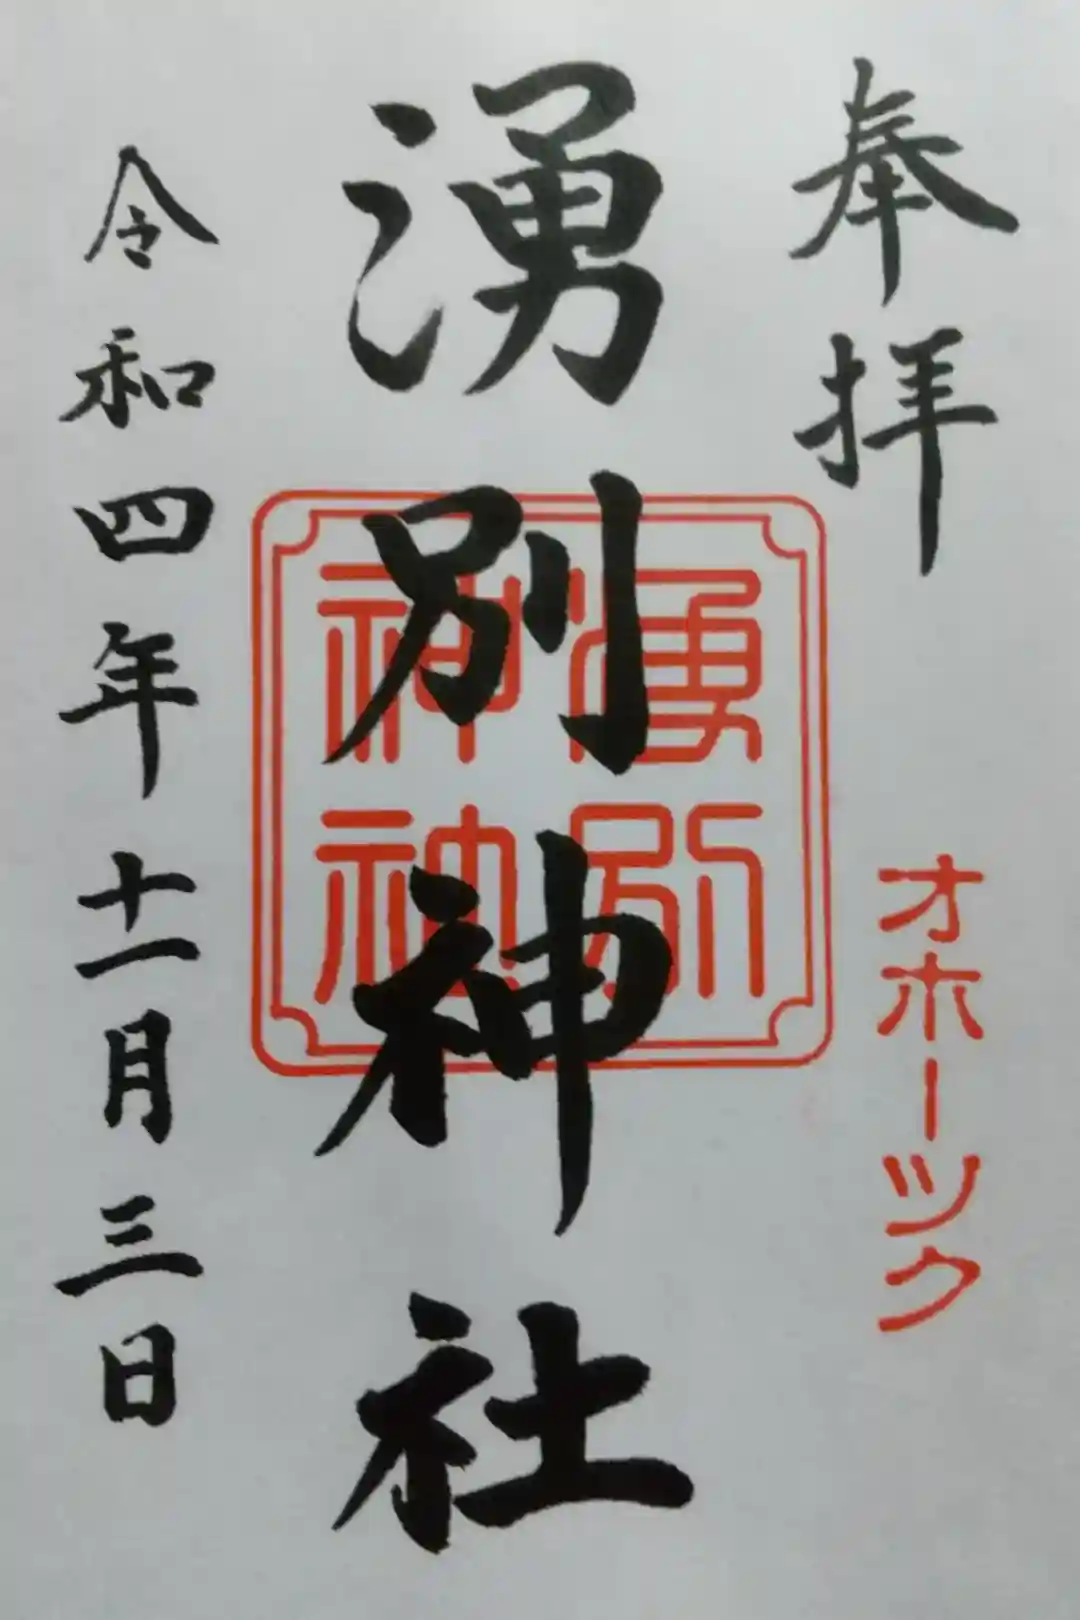 奉拝
オホーツク
湧別神社
湧別
神社
令和四年十一月三日